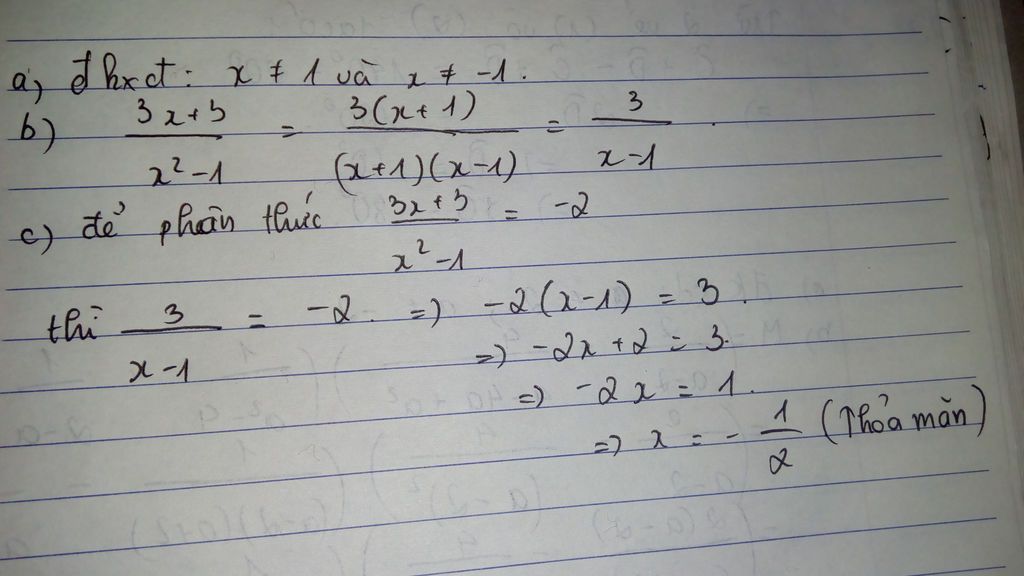 a) đkxđ: x ≠ 1 và x ≠ -1.
b) (3x+3)/(x²-1) = 3(x+1)/((x+1)(x-1)) = 3/(x-1).
c) để phân thức (3x+3)/(x²-1) = -2
thì 3/(x-1) = -2. => -2(x-1) = 3.
=> -2x+2 = 3.
=> -2x = 1.
=> x = -1/2 (Thỏa mãn)